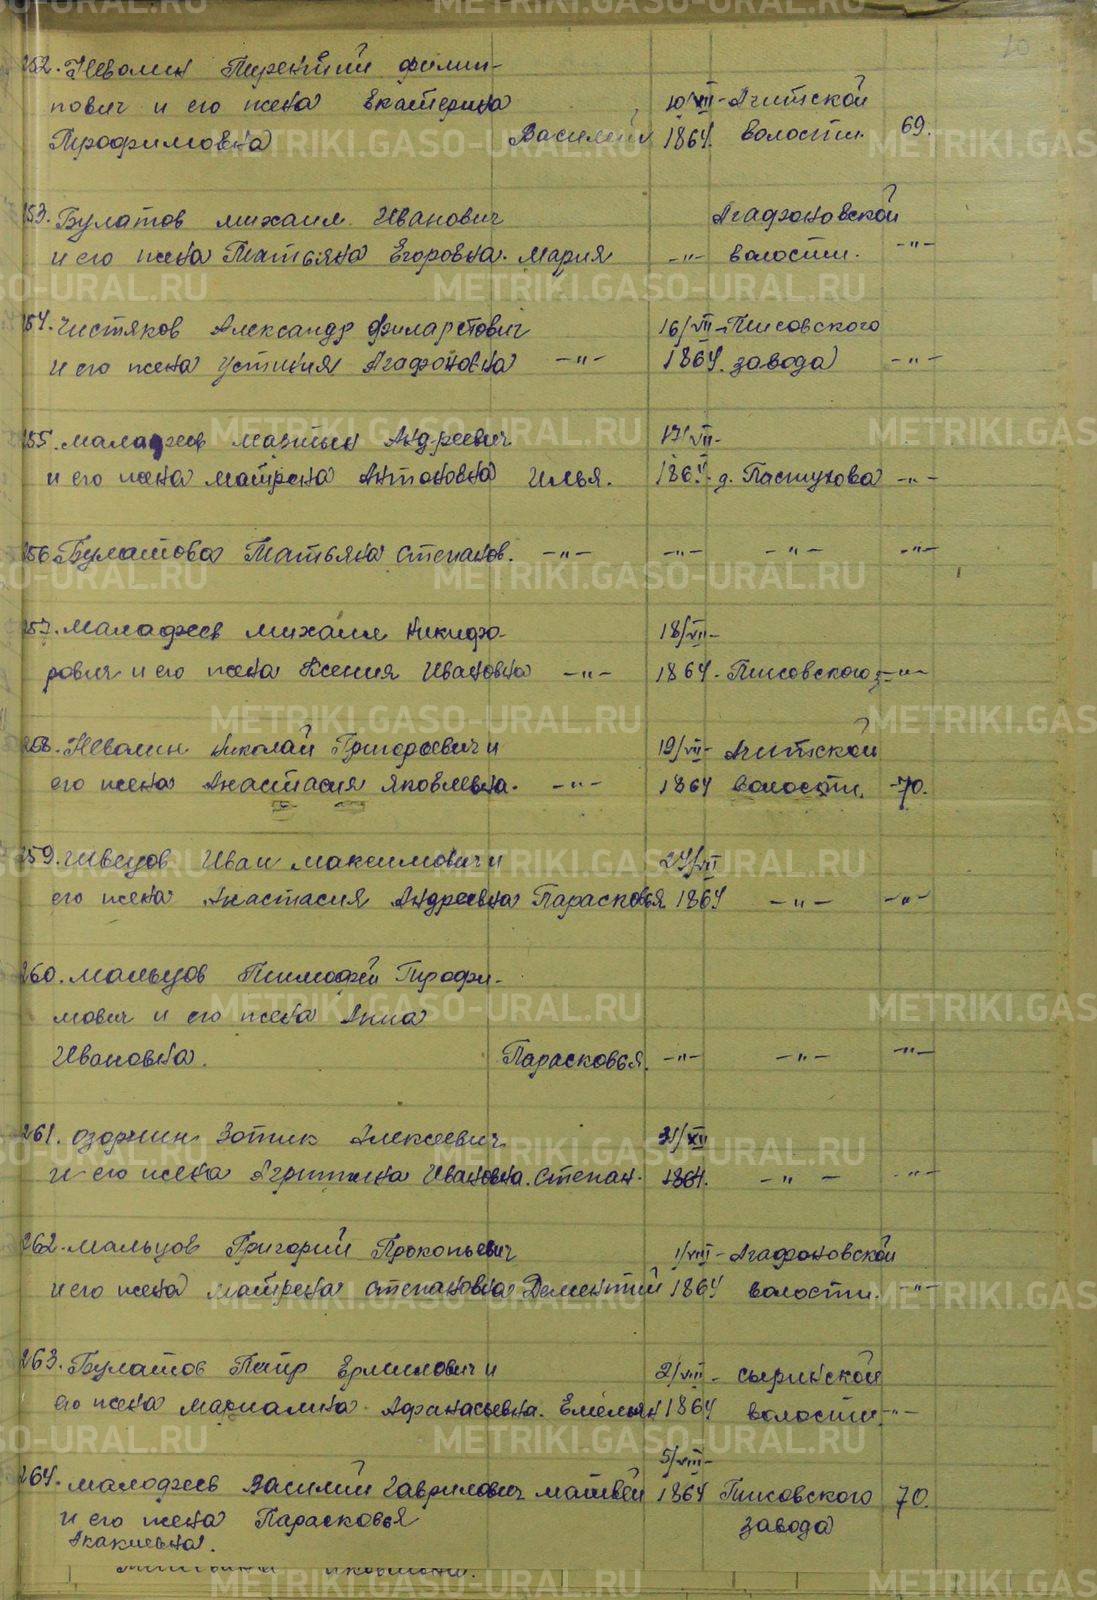 10
252. Неволин Терентий филип-
пович и его жена Екатерина
Трофимовна Василий 10/XII- 1864. Ачитской волости. 69.
253. Булатов михаил Иванович
и его жена Татьяна Егоровна. Мария -"- Агафоновской волости. -"-
254. Чистяков Александр Филаретович
и его жена Устиния Агафоновна -"- 16/VII- 1864. Тисовского завода -"-
255. малафеев мартын Андреевич
и его жена матрена Антоновна Илья. 17/VII- 1864. д. Пастухова -"-
256. Булатова Татьяна степанов. -"- -"- -"- -"-
257. Малафеев михаил Никифо-
рович и его жена Ксения Ивановна -"- 18/VII- 1864. Тисовского з. -"-
258. Неволин Николай Григорьевич и
его жена Анастасия Яковлевна. -"- 19/VII- 1864 Ачитской волости. -70.
259. Швецов Иван максимович и
его жена Анастасия Андреевна Парасковья 24/VII 1864 -"- -"-
260. мальцов Тимофей Трофи-
мович и его жена Анна
Ивановна. Парасковья. -"- -"- -"-
261. озорнин Зотик Алексеевич
и его жена Агрипина Ивановна. Степан. 31/XII 1864. -"- -"-
262. мальцов Григорий Прокопьевич
и его жена матрена степановна Дементий 1/VIII- 1864 Агафоновской волости. -"-
263. Булатов Петр Ермилович и
его жена мариамна Афанасьевна. Емельян 2/VIII- 1864 сыринской волости -"-
264. малофеев Василий Гаврилович матвей 5/VIII- 1864 Тисовского завода 70.
и его жена Парасковья
Акакиевна.
METRIKI.GASO-URAL.RU